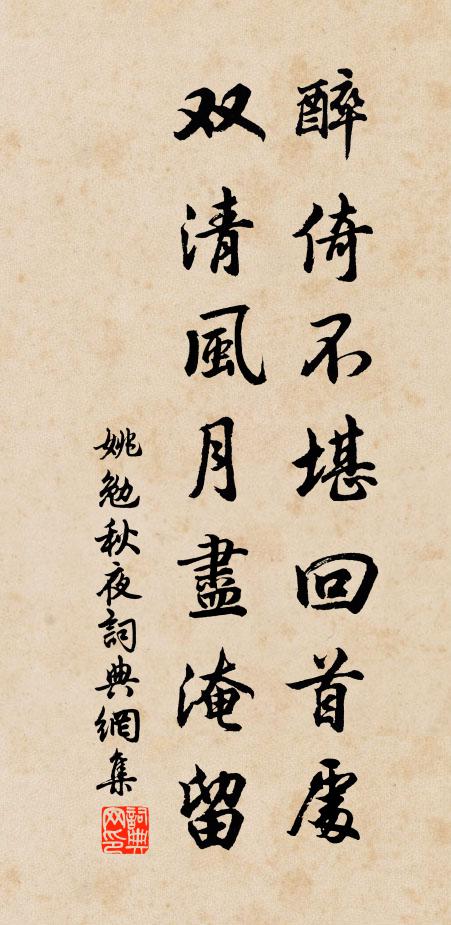 醉倚不堪回首處
双清風月盡淹留
姚勉秋夜詞典網集
詞典网印